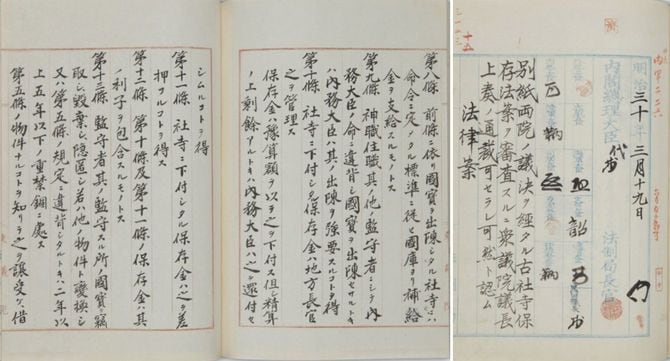 明治三十年三月十九日
内閣總理大臣 代
法制局長官
別紙両院ノ議決ヲ経タル古社寺保
存法案ヲ審査スルニ衆議院議長
上奏ノ通裁可セラレ可然ト認ム
法律案
第八條 前條ニ依リ國寶ヲ出陳シタル社寺ニハ
命令ノ定メタル標準ニ従ヒ國庫ヨリ補給
金ヲ支給スルモノトス
第九條 神職住職其ノ他ノ監守者ニシテ内
務大臣ノ命ニ違背シ國寶ヲ出陳セサルトキ
ハ内務大臣ハ其ノ出陳ヲ強要スルコトヲ得
第十條 社寺ニ下付シタル保存金ハ地方長官
之ヲ管理ス
保存金ハ豫算額ヲ以テ之ヲ下付ス但シ精算
ノ上剰餘アルトキハ内務大臣ハ之ヲ還付セ
シムルコトヲ得
第十一條 社寺ニ下付シタル保存金ハ之ヲ差
押フルコトヲ得
第十二條 第十條及第十一條ノ保存金ハ其
ノ利子ヲ包含スルモノトス
第十三條 監守者其ノ監守スル所ノ國寶ヲ竊
取シ毀棄シ隠匿シ若ハ他ノ物件ト変換シ
又ハ第五條ノ規定ニ違背シタルトキハ二年以
上五年以下ノ重禁錮ニ處ス
第五條ノ物件ナルコトヲ知リテ之ヲ譲受ケ借